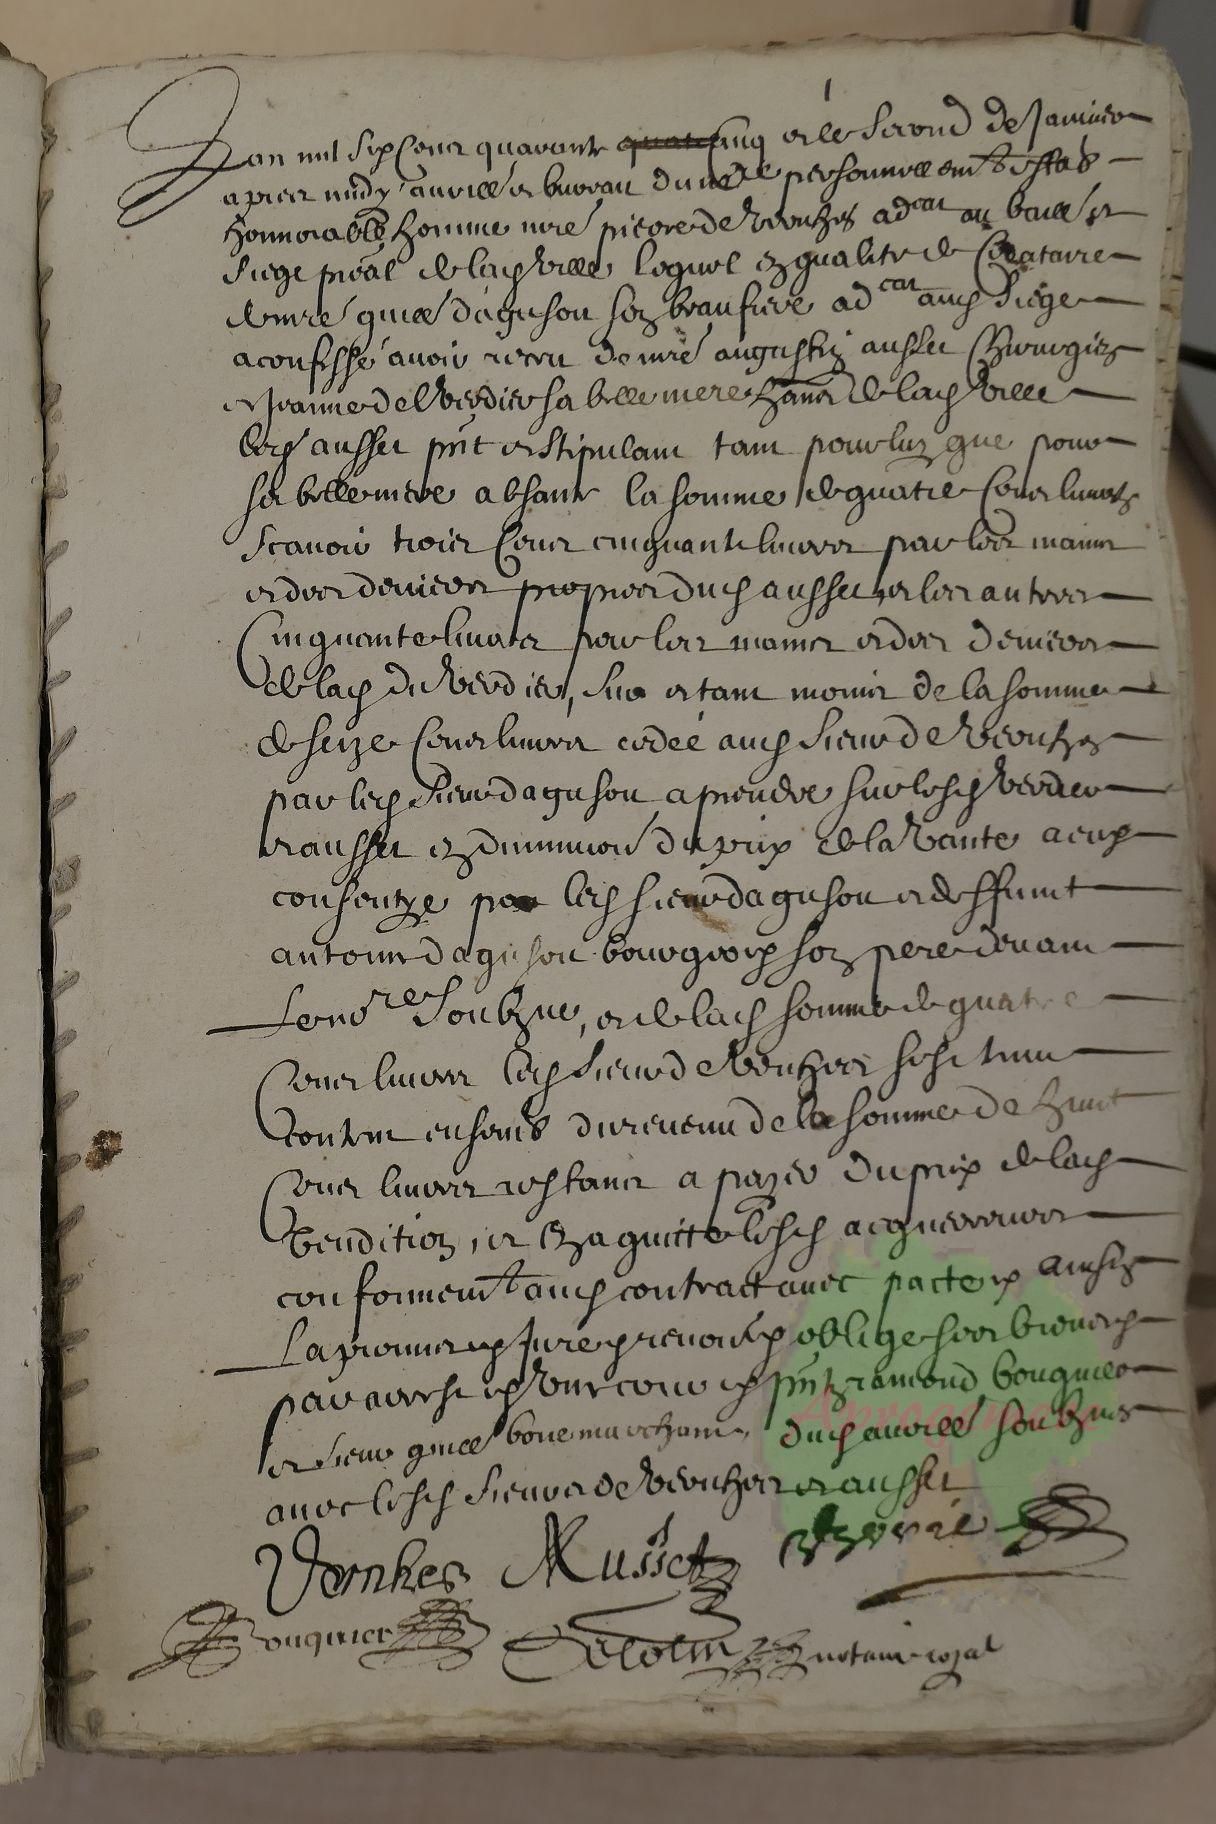 Lan mil six cens quarante cinq et le second de Janvier
apres midy aurillac bureau du no.re personnellement estab
honnorable homme me pierre de Verntzes ad.cat au baill. et
siege preal de lad ville lequel en qualite de Cessataire
de me guill daguson son beaufrere ad.cat aud siege
a confesse avoir receu de me augustin ausset Chirurgien
et Jeanne del Verdier sa belle mere de lad ville
led ausset pnt et stipulant tant pour luy que pour
sa belle mere absante la somme de quatre cens livres
scavoir trois cens cinquante livres par les mains
et des deniers propres dud ausset, et les autres
Cinquante livres par les mains et des deniers
de lad du Verdier, sur et tant moins de la somme
de seize cens livres cedee aud sieur de Verntzes
par led sieur daguson a prendre sur lesd Verdier
et ausset en diminuon du prix de la Vante a eux
consentye par led sieur daguson et deffunt
antoine daguson bourgeois son pere devant
le no.re soubzne, et de lad somme de quatre
Cens livres led sieur de Verntzes sest tenu
contant ensemb du revenu de la somme de huit
Cens livres restans a payer du prix de lad
Vendition, et en a quitte lesd acquereurs
conformement aud contract avec pacte ainsin
la promis jure renonce oblige ses biens
par pnt ramond bouquier
et sieur guill bonemarchant dud aurillac soubznes
avec lesd sieurs de Verntzes et ausset
Verntzes AUsset
Bouquier Delolm notaire royal